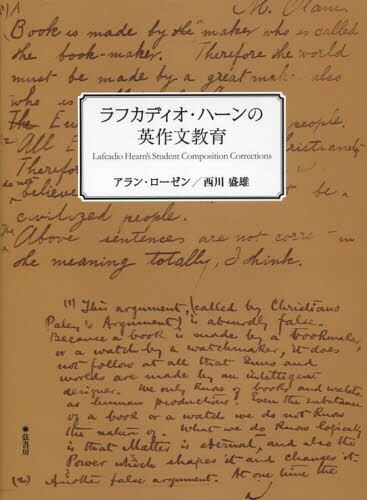 M. Otani
(1) A Book is made by the "maker who is called
the book-maker. Therefore the world
must be made by a great mak also
who is
people.
2) All Christianity
Therefore
not believe be a
civilized people.
The Above sentences are not corre - in
the meaning totally, I think.
ラフカディオ・ハーンの
英作文教育
Lafcadio Hearn's Student Composition Corrections
アラン・ローゼン／西川 盛雄
(1) This argument, (called by Christians
Paley's Argument) is absurdly false.
Because a book is made by a bookmaker,
or a watch by a watchmaker, it does
not follow at all that Suns and
worlds are made by an intelligent
designer. We only know of books and watches
as human productions. Even the substance
of a book or a watch we do not know
the nature of. What we do know logically
is that Matter is eternal, and also the
Power which shapes it and changes it.
(2) Another false argument. At one time the
弦書房